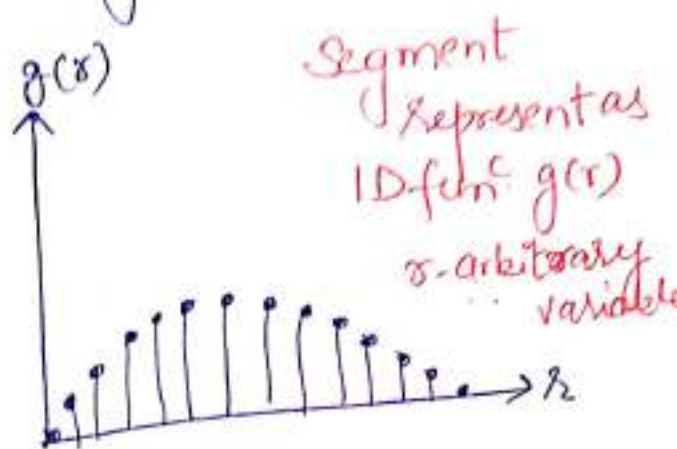 g(r)
Segment
represent as
1D-funᶜ g(r)
r-arbitrary
variable
r